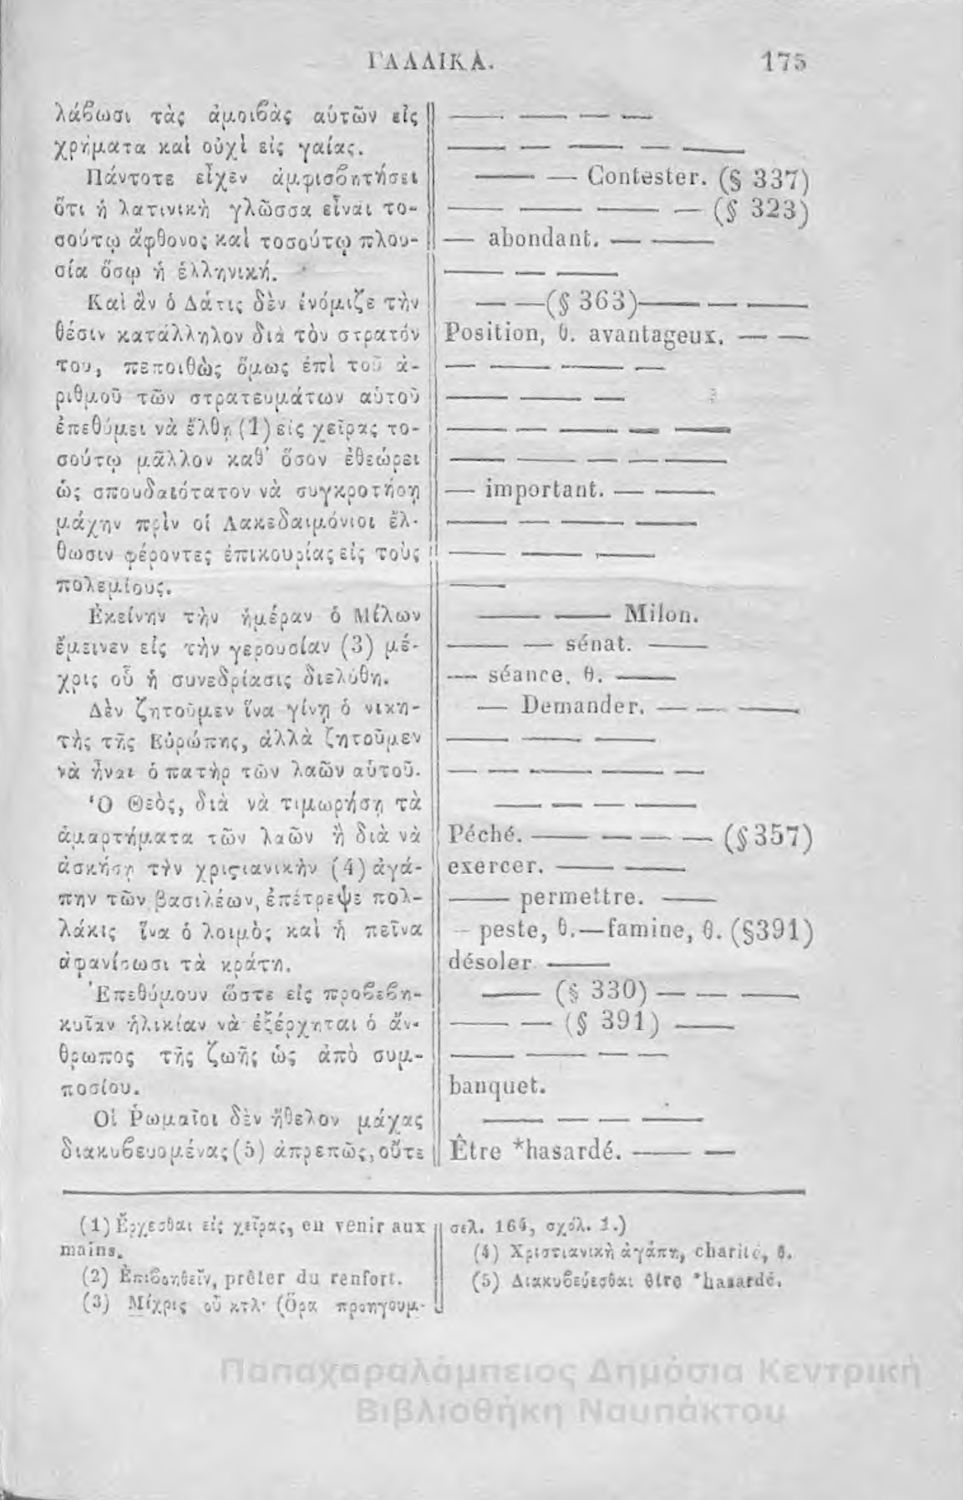 ΓΑΛΛΙΚΑ.
175
λάβωσι τὰς ἀμοιβὰς αὐτῶν εἰς
χρήματα καὶ οὐχὶ εἰς γαίας.
Πάντοτε εἶχεν ἀμφισβητήσει
ὅτι ἡ λατινικὴ γλῶσσα εἶναι το-
σούτῳ ἄφθονος καὶ τοσούτῳ πλου-
σία ὅσῳ ἡ ἑλληνική.
Καὶ ἂν ὁ Δάτις δὲν ἐνόμιζε τὴν
θέσιν κατάλληλον διὰ τὸν στρατόν
του, πεποιθὼς ὅμως ἐπὶ τοῦ ἀ-
ριθμοῦ τῶν στρατευμάτων αὑτοῦ
ἐπεθύμει νὰ ἔλθῃ (1) εἰς χεῖρας το-
σούτῳ μᾶλλον καθ' ὅσον ἐθεώρει
ὡς σπουδαιότατον νὰ συγκροτήσῃ
μάχην πρὶν οἱ Λακεδαιμόνιοι ἔλ-
θωσιν φέροντες ἐπικουρίας εἰς τοὺς
πολεμίους.
Ἐκείνην τὴν ἡμέραν ὁ Μίλων
ἔμεινεν εἰς τὴν γερουσίαν (3) μέ-
χρις οὗ ἡ συνεδρίασις διελύθη.
Δὲν ζητοῦμεν ἵνα γίνῃ ὁ νικη-
τὴς τῆς Εὐρώπης, ἀλλὰ ζητοῦμεν
νὰ ἦναι ὁ πατὴρ τῶν λαῶν αὑτοῦ.
Ὁ Θεὸς, διὰ νὰ τιμωρήσῃ τὰ
ἁμαρτήματα τῶν λαῶν ἢ διὰ νὰ
ἀσκήσῃ τὴν χριςιανικὴν (4) ἀγά-
πην τῶν βασιλέων, ἐπέτρεψε πολ-
λάκις ἵνα ὁ λοιμὸς καὶ ἡ πεῖνα
ἀφανίσωσι τὰ κράτη.
Ἐπεθύμουν ὥστε εἰς προβεβη-
κυῖαν ἡλικίαν νὰ ἐξέρχηται ὁ ἄν-
θρωπος τῆς ζωῆς ὡς ἀπὸ συμ-
ποσίου.
Οἱ Ῥωμαῖοι δὲν ἤθελον μάχας
διακυβευομένας (5) ἀπρεπῶς, οὔτε
— — — —
— — — —
— — Contester. (§ 337)
— — — — (§ 323)
— abondant. — —
— — —
— —(§ 363)— — —
Position, θ. avantageux. — —
— — — —
— — — —
— — — — —
— — — — —
— important. — —
— — — —
— — —
—
— — Milon.
— — sénat. —
— séance. θ. —
— Demander. — — —
— — — —
— — — — — —
— — — —
Péché. — — — — (§357)
exercer. — —
— permettre. —
— peste, θ.—famine, θ. (§391)
désoler —
— (§ 330) — — —
— — (§ 391) —
— — — —
banquet.
— — — —
Être *hasardé. — —
(1) Ἔρχεσθαι εἰς χεῖρας, en venir aux
mains.
(2) Ἐπιβοηθεῖν, prêter du renfort.
(3) Μέχρις οὗ κτλ· (Ὅρα προηγουμ·
σελ. 164, σχόλ. 1.)
(4) Χριστιανικὴ ἀγάπη, charité, θ.
(5) Διακυβεύεσθαι être *hasardé.
Παπαχαραλάμπειος Δημόσια Κεντρική
Βιβλιοθήκη Ναυπάκτου